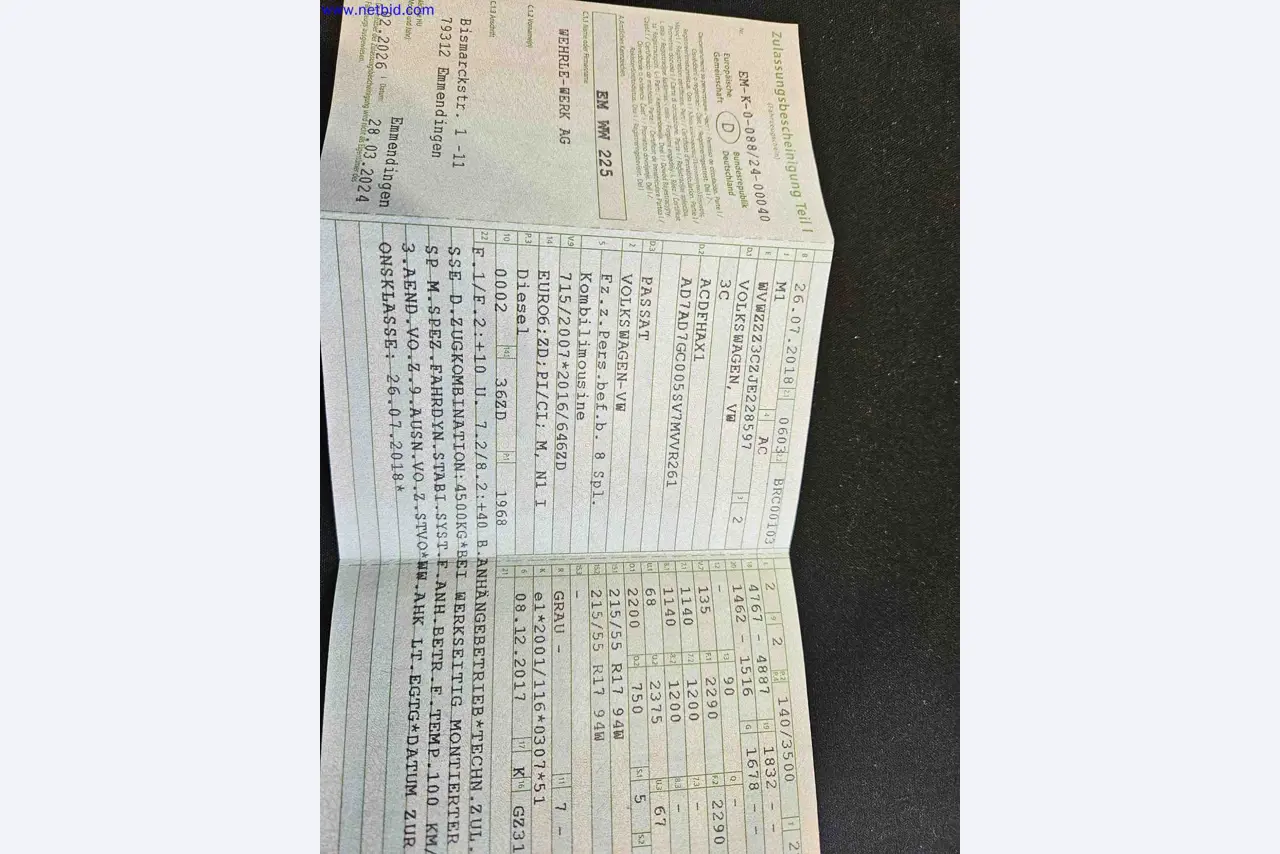 www.netbid.com
Zulassungsbescheinigung Teil I
(Fahrzeugschein)
Nr. EM-K-0-088/24-00040
Europäische Gemeinschaft
D
Bundesrepublik Deutschland
EM WW 225
WEHRLE-WERK AG
Bismarckstr. 1 -11
79312 Emmendingen
02.2026
Emmendingen
28.03.2024
B 26.07.2018 2.1 0603 2.2 BRC00103
J M1 4 AC
E WVWZZZ3CZJE228597 3 2
D.1 VOLKSWAGEN, VW
D.2 3C
ACDFHAX1
AD7AD7GC005SV7MVVR261
D.3 PASSAT
2 VOLKSWAGEN-VW
5 Fz.z.Pers.bef.b. 8 Spl.
Kombilimousine
V.9 715/2007*2016/646ZD
14 EURO6;ZD;PI/CI; M, N1 I
P.3 Diesel
10 0002 14.1 36ZD P.1 1968
22 F.1/F.2:+10 U. 7.2/8.2:+40 B.ANHÄNGEBETRIEB*TECHN.ZUL.
SSE D.ZUGKOMBINATION:4500KG*BEI WERKSEITIG MONTIERTER
SP M.SPEZ.FAHRDYN.STABI.SYST.F.ANH.BETR.F.TEMP.100 KM/
3.AEND.VO.Z.9.AUSN.VO.Z.STVO*WW.AHK LT.EGTG*DATUM ZUR
ONSKLASSE: 26.07.2018*
L 2 9 2 P.2 P.4 140/3500 T 2
18 4767 - 4887 19 1832 - -
20 1462 - 1516 G 1678 - -
12 - 13 90 Q -
V.7 135 F.1 2290 F.2 2290
7.1 1140 7.2 1200 7.3 -
8.1 1140 8.2 1200 8.3 -
U.1 68 U.2 2375 U.3 67
O.1 2200 O.2 750 S.1 5 S.2
15.1 215/55 R17 94W
15.2 215/55 R17 94W
15.3 -
R GRAU - 11 7 -
K e1*2001/116*0307*51
6 08.12.2017 17 K 16 GZ31
21